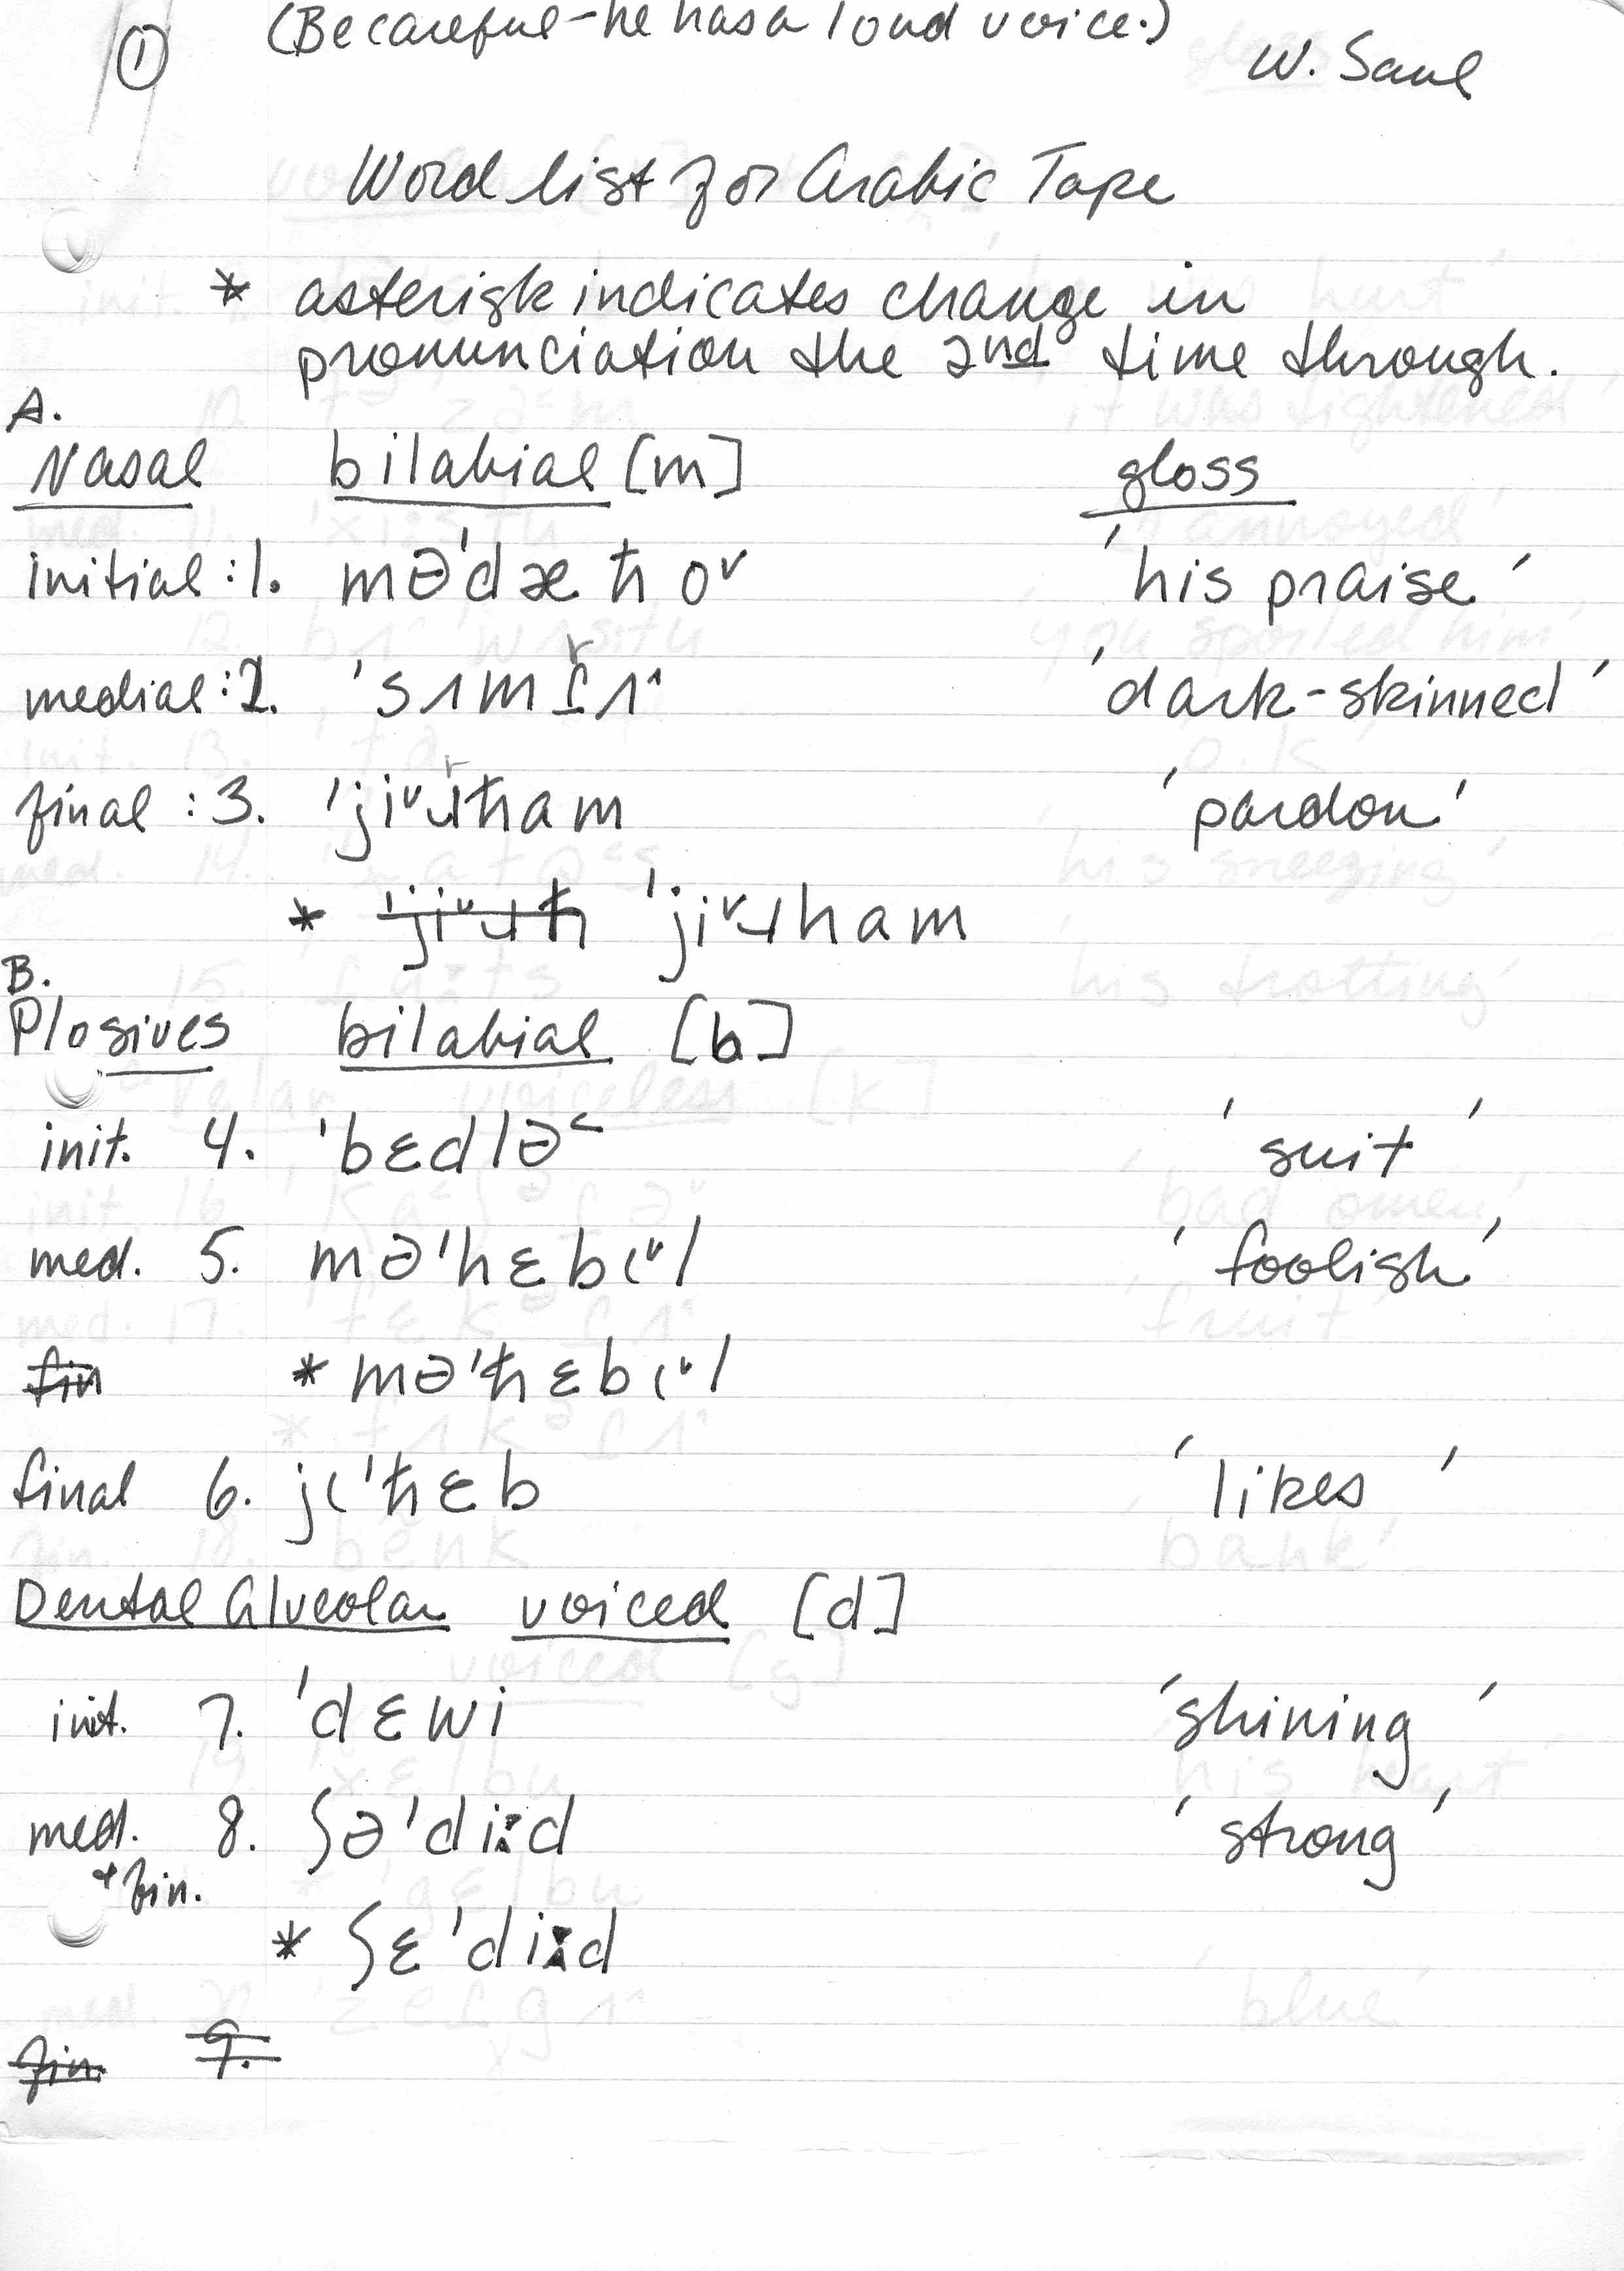 ① (Be careful - he has a loud voice.)
W. Saul
Word list for Arabic Tape
* asterisk indicates change in
pronunciation the 2nd time through.
A.
Nasal bilabial [m] gloss
initial : 1. mə'dæħo˅ 'his praise'
medial : 2. 'sʌmɾʌ˄ 'dark-skinned'
final : 3. 'ji˅ɹħam 'pardon'
* 'ji˅ɹħ 'ji˅ɹham
B.
Plosives bilabial [b]
init. 4. 'bɛdlə˂ 'suit'
med. 5. mə'hɛbɩ˅l 'foolish'
fin * mə'ħɛbɩ˅l
final 6. jɩ'ħɛb 'likes'
Dental Alveolar voiced [d]
init. 7. 'dɛwi 'shining'
med. 8. ʃə'diːd 'strong'
+ fin.
* ʃɛ'diːd
fin. 9.